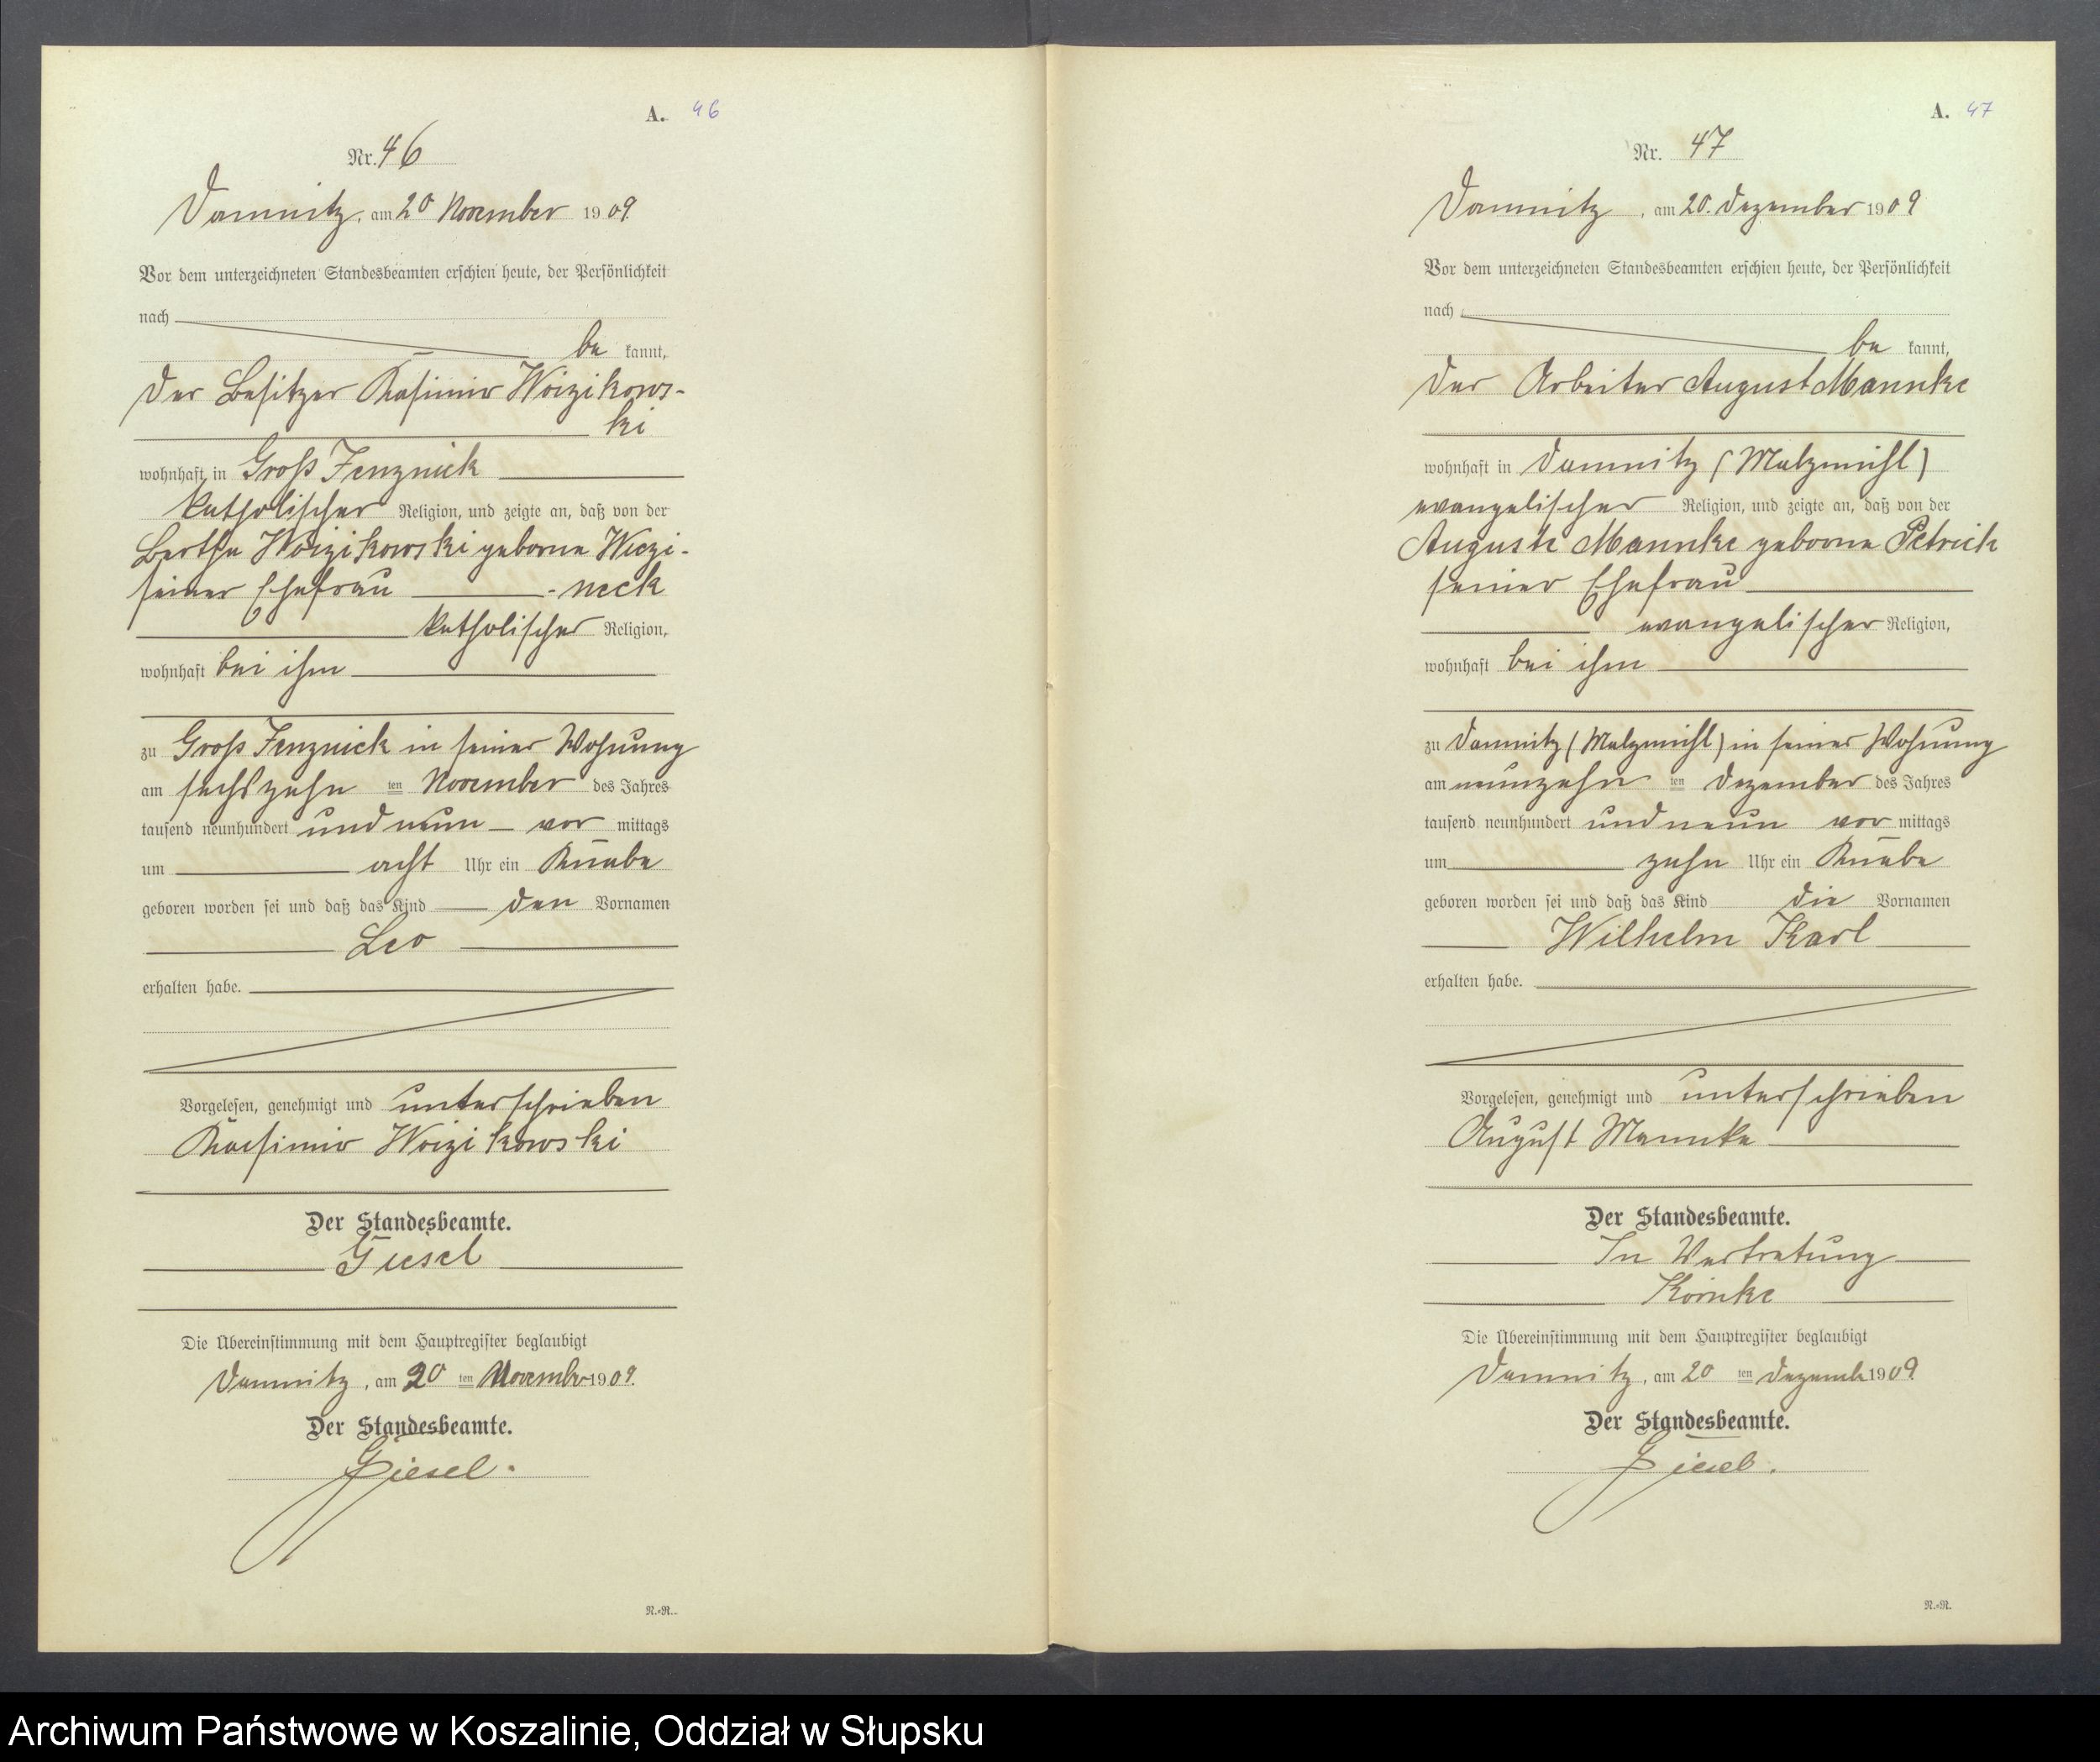 A. 46
Nr. 46
Damnitz, am 20 November 1909.
Vor dem unterzeichneten Standesbeamten erschien heute, der Persönlichkeit
nach
be kannt,
Der Besitzer Kasimir Woizikows-
ki
wohnhaft in Groß Jenznick
katholischer Religion, und zeigte an, daß von der
Bertha Woizikowski geborne Wiczi-
seiner Ehefrau -neck
katholischer Religion,
wohnhaft bei ihm
zu Groß Jenznick in seiner Wohnung
am sechszehn ten November des Jahres
tausend neunhundert und neun vor mittags
um acht Uhr ein Knabe
geboren worden sei und daß das Kind den Vornamen
Leo
erhalten habe.
Vorgelesen, genehmigt und unterschrieben
Kasimir Woizikowski
Der Standesbeamte.
Giesel
Die Übereinstimmung mit dem Hauptregister beglaubigt
Damnitz, am 20 ten November 1909.
Der Standesbeamte.
Giesel.
N.=N.
A. 47
Nr. 47
Damnitz, am 20. Dezember 1909
Vor dem unterzeichneten Standesbeamten erschien heute, der Persönlichkeit
nach
be kannt,
der Arbeiter August Mannke
wohnhaft in Damnitz (Malzmühl)
evangelischer Religion, und zeigte an, daß von der
Auguste Mannke geborne Petrick
seiner Ehefrau
evangelischer Religion,
wohnhaft bei ihm
zu Damnitz (Malzmühl) in seiner Wohnung
am neunzehn ten Dezember des Jahres
tausend neunhundert und neun vor mittags
um zehn Uhr ein Knabe
geboren worden sei und daß das Kind die Vornamen
Wilhelm Karl
erhalten habe.
Vorgelesen, genehmigt und unterschrieben
August Mannke
Der Standesbeamte.
In Vertretung
Die Übereinstimmung mit dem Hauptregister beglaubigt
Damnitz, am 20 ten Dezemb 1909.
Der Standesbeamte.
Giesel.
N.=N.
Archiwum Państwowe w Koszalinie, Oddział w Słupsku